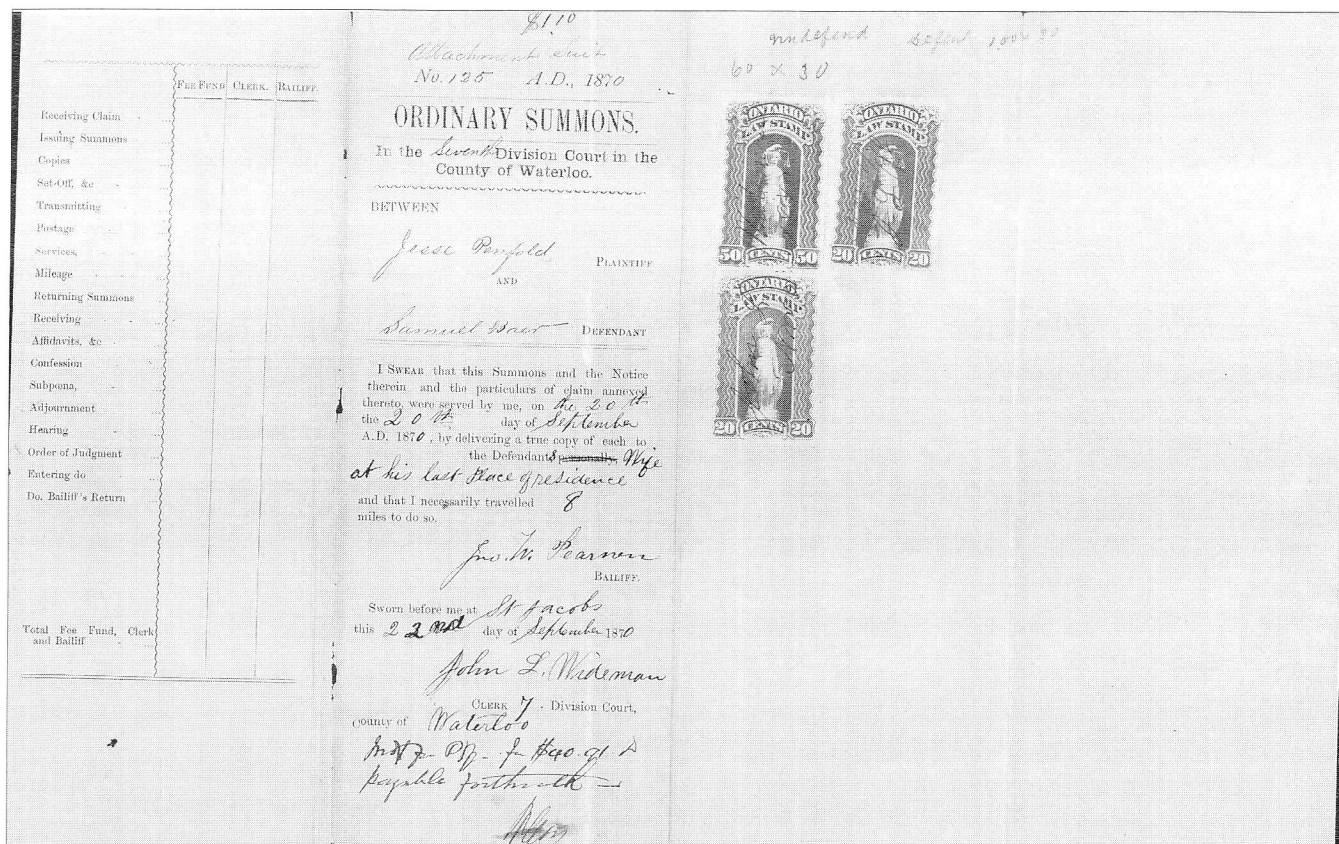 FEE FUND CLERK. BAILIFF.
Receiving Claim
Issuing Summons
Copies
Set-Off, &c
Transmitting
Postage
Services,
Mileage
Returning Summons
Receiving
Affidavits, &c
Confession
Subpœna,
Adjournment
Hearing
Order of Judgment
Entering do
Do. Bailiff's Return
Total Fee Fund, Clerk
and Bailiff
$1.10
Attachment suit
No. 125 A.D., 1870
ORDINARY SUMMONS.
In the Seventh Division Court in the
County of Waterloo.
BETWEEN
Jesse Penfold
PLAINTIFF
AND
Samuel DEFENDANT
I SWEAR that this Summons and the Notice
therein and the particulars of claim annexed
thereto, were served by me, on the 20th
the 20th day of September
A.D. 1870, by delivering a true copy of each to
the Defendants personally, Wife
at his last Place of residence
and that I necessarily travelled 8
miles to do so.
Jno. W. Pearnen
BAILIFF.
Sworn before me at St Jacobs
this 22nd day of September 1870
John L. Wideman
CLERK 7 Division Court,
county of Waterloo
for $40.91
payable forthwith
undefend defend 100 x 30
60 x 30
ONTARIO
LAW STAMP
50 CENTS 50
ONTARIO
LAW STAMP
20 CENTS 20
ONTARIO
LAW STAMP
20 CENTS 20